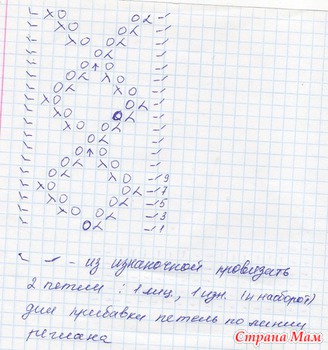 9
7
5
3
1
- из изнаночной провязать
2 петли : 1 лиц., 1 изн. (и наоборот)
для прибавки петель по линии
реглана
Страна Мам